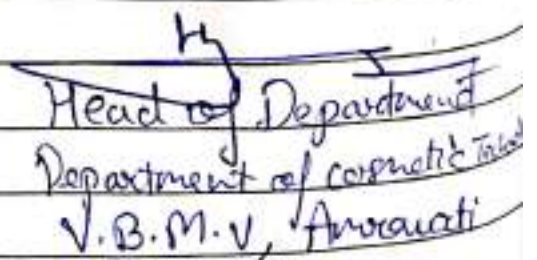 Head of Department
Department of cosmetic
V.B.M.V, Amravati